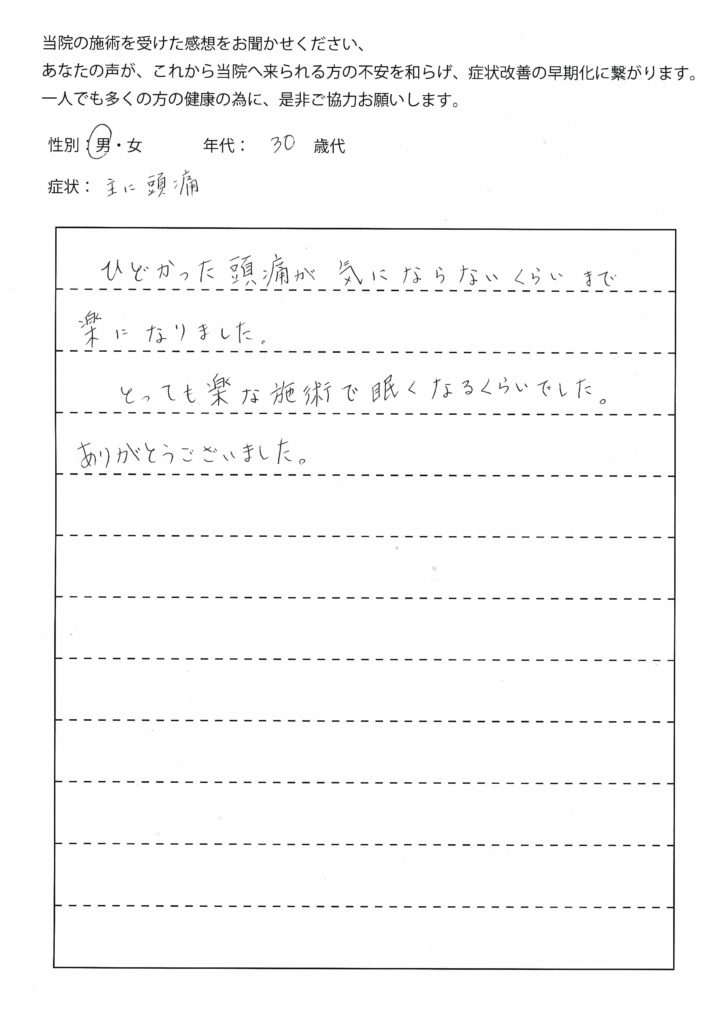 当院の施術を受けた感想をお聞かせください、
あなたの声が、これから当院へ来られる方の不安を和らげ、症状改善の早期化に繋がります。
一人でも多くの方の健康の為に、是非ご協力お願いします。
性別：男・女　年代： 30 歳代
症状： 主に頭痛
ひどかった頭痛が気にならないくらいまで
楽になりました。
とっても楽な施術で眠くなるくらいでした。
ありがとうございました。